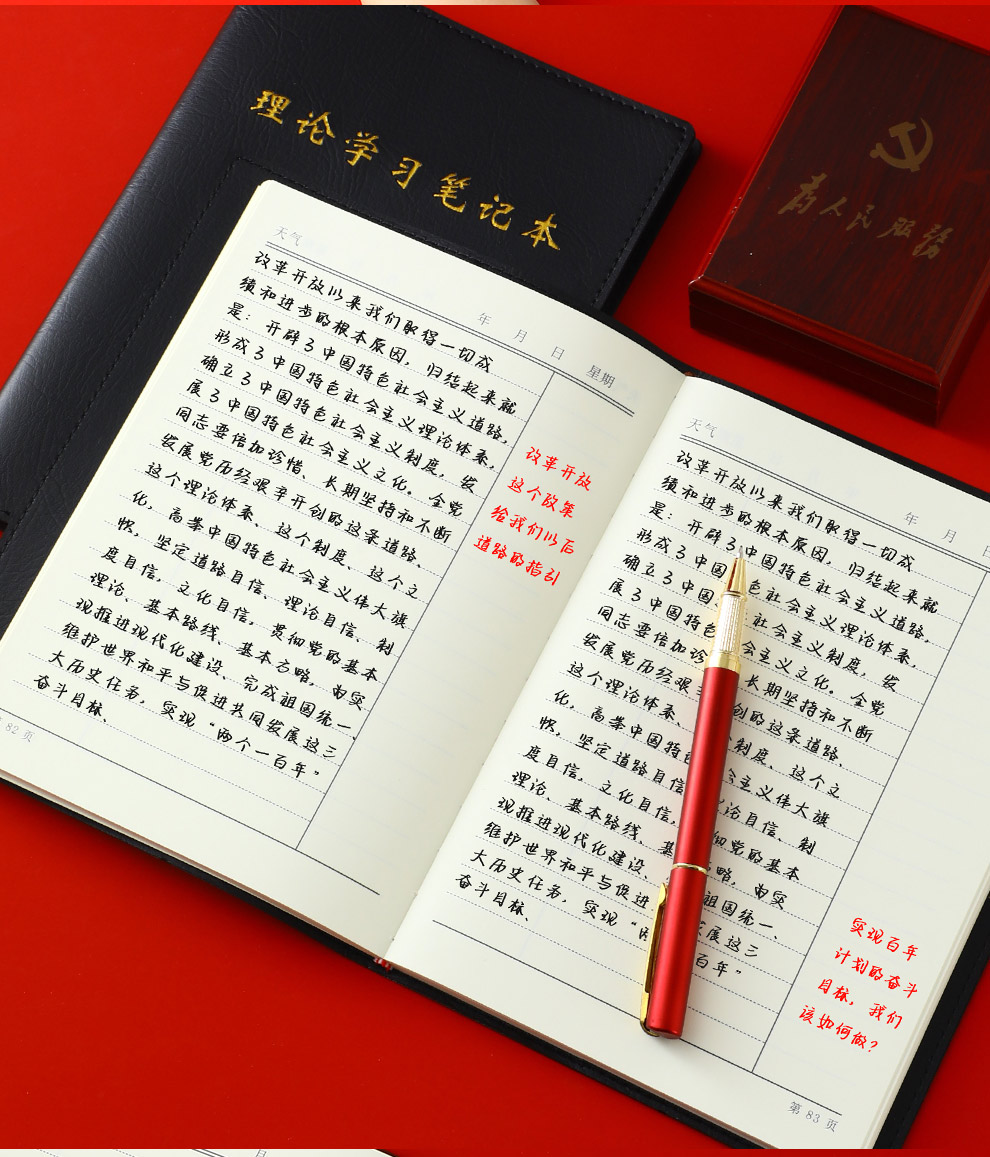 理论学习笔记本
为人民服务
天气
年 月 日 星期
改革开放以来我们取得一切成
绩和进步的根本原因，归结起来就
是：开辟了中国特色社会主义道路，
形成了中国特色社会主义理论体系，
确立了中国特色社会主义制度，发
展了中国特色社会主义文化。全党
同志要倍加珍惜、长期坚持和不断
发展党历经艰辛开创的这条道路、
这个理论体系、这个制度、这个文
化，高举中国特色社会主义伟大旗
帜，坚定道路自信、理论自信、制
度自信，文化自信，贯彻党的基本
理论、基本路线、基本方略，为实
现推进现代化建设、完成祖国统一、
维护世界和平与促进共同发展这三
大历史任务，实现“两个一百年”
奋斗目标、
改革开放
这个政策
给我们以后
道路的指引
82 页
天气
年 月 日
改革开放以来我们取得一切成
绩和进步的根本原因，归结起来就
是：开辟了中国特色社会主义道路，
形成了中国 色社会主义理论体系，
确立了中国 社会主义制度，发
展了中国特色 会主义文化。全党
同志要倍加珍 长期坚持和不断
发展党历经艰 创的这条道路、
这个理论体系、 制度、这个文
化，高举中国特 会主义伟大旗
帜，坚定道路自信 论自信、制
度自信，文化自信， 彻党的基本
理论、基本路线、基 略，为实
现推进现代化建设、 祖国统一、
维护世界和平与促进 发展这三
大历史任务，实现“两 百年”
奋斗目标、
实现百年
计划的奋斗
目标，我们
该如何做？
第 83 页